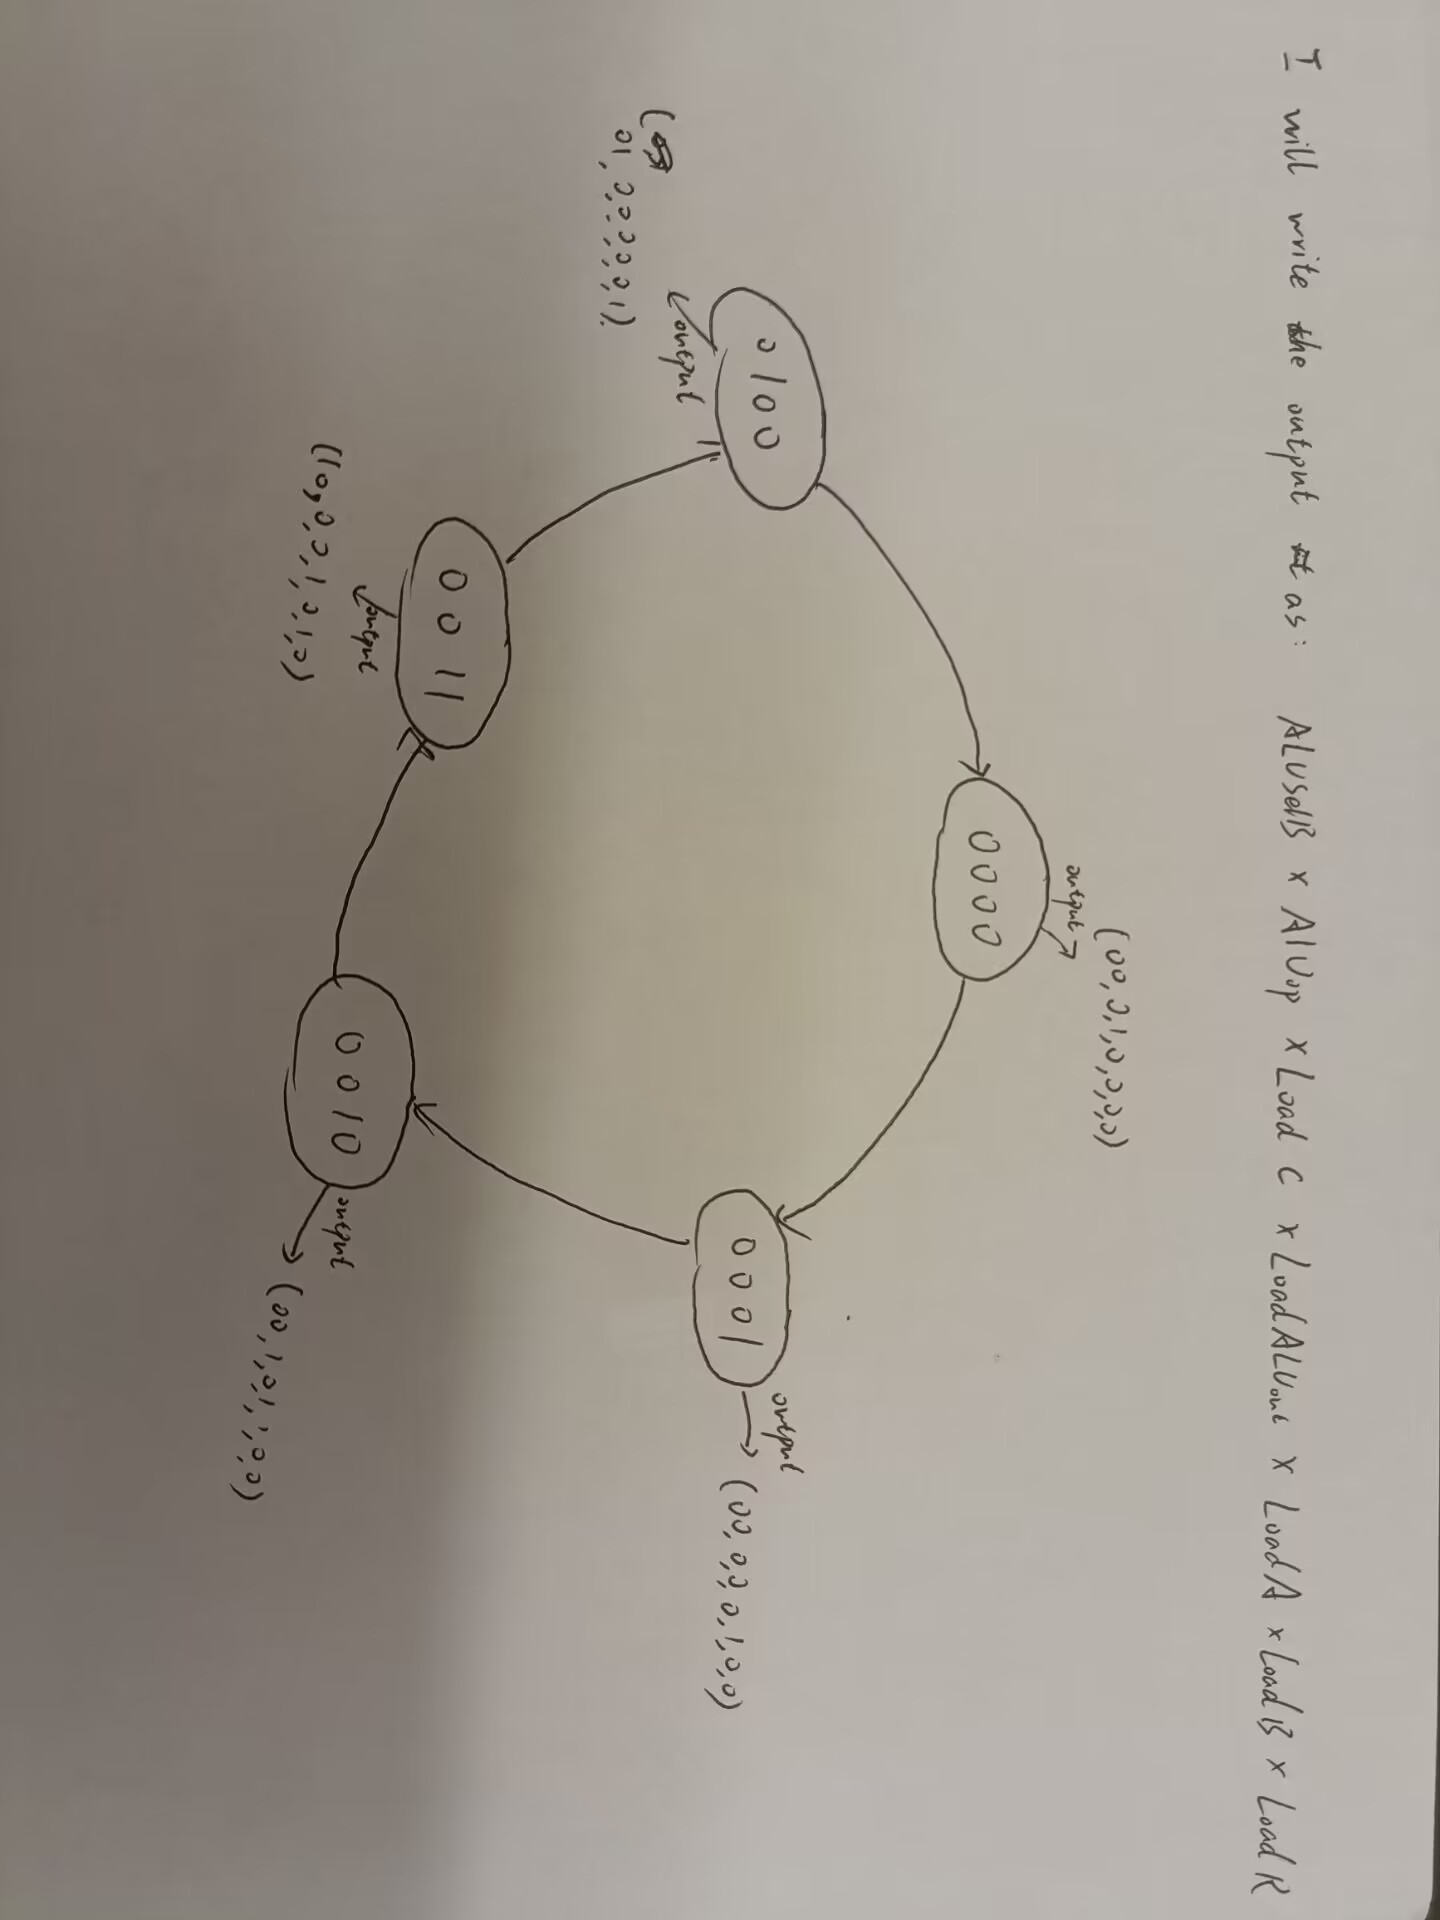 I will write the output as: ALUSelB x AlUop x Load C x LoadALUout x LoadA x Load B x Load R
(00,0,1,0,0,0,0)
output
0000
0100
output
0001
output
(00,0,0,0,1,0,0)
output
01,0,0,0,0,0,1).
0011
output
(10,0,0,1,0,1,0)
0010
output
(00,1,0,1,1,0,0)